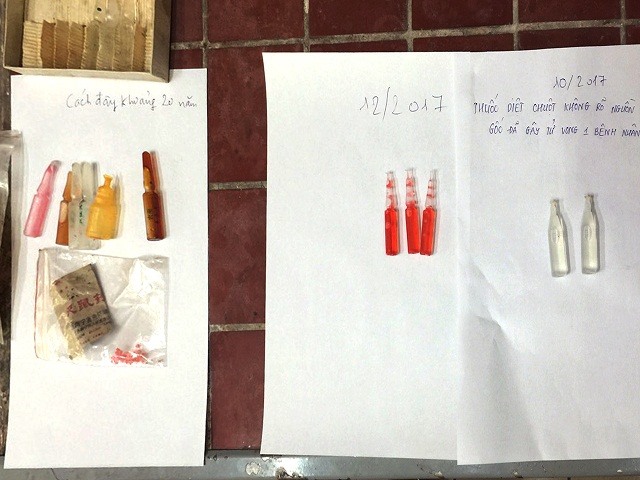 Cách đây khoảng 20 năm
12/2017
10/2017
THUỐC DIỆT CHUỘT KHÔNG RÕ NGUỒN
GỐC ĐÃ GÂY TỬ VONG 1 BỆNH NHÂN